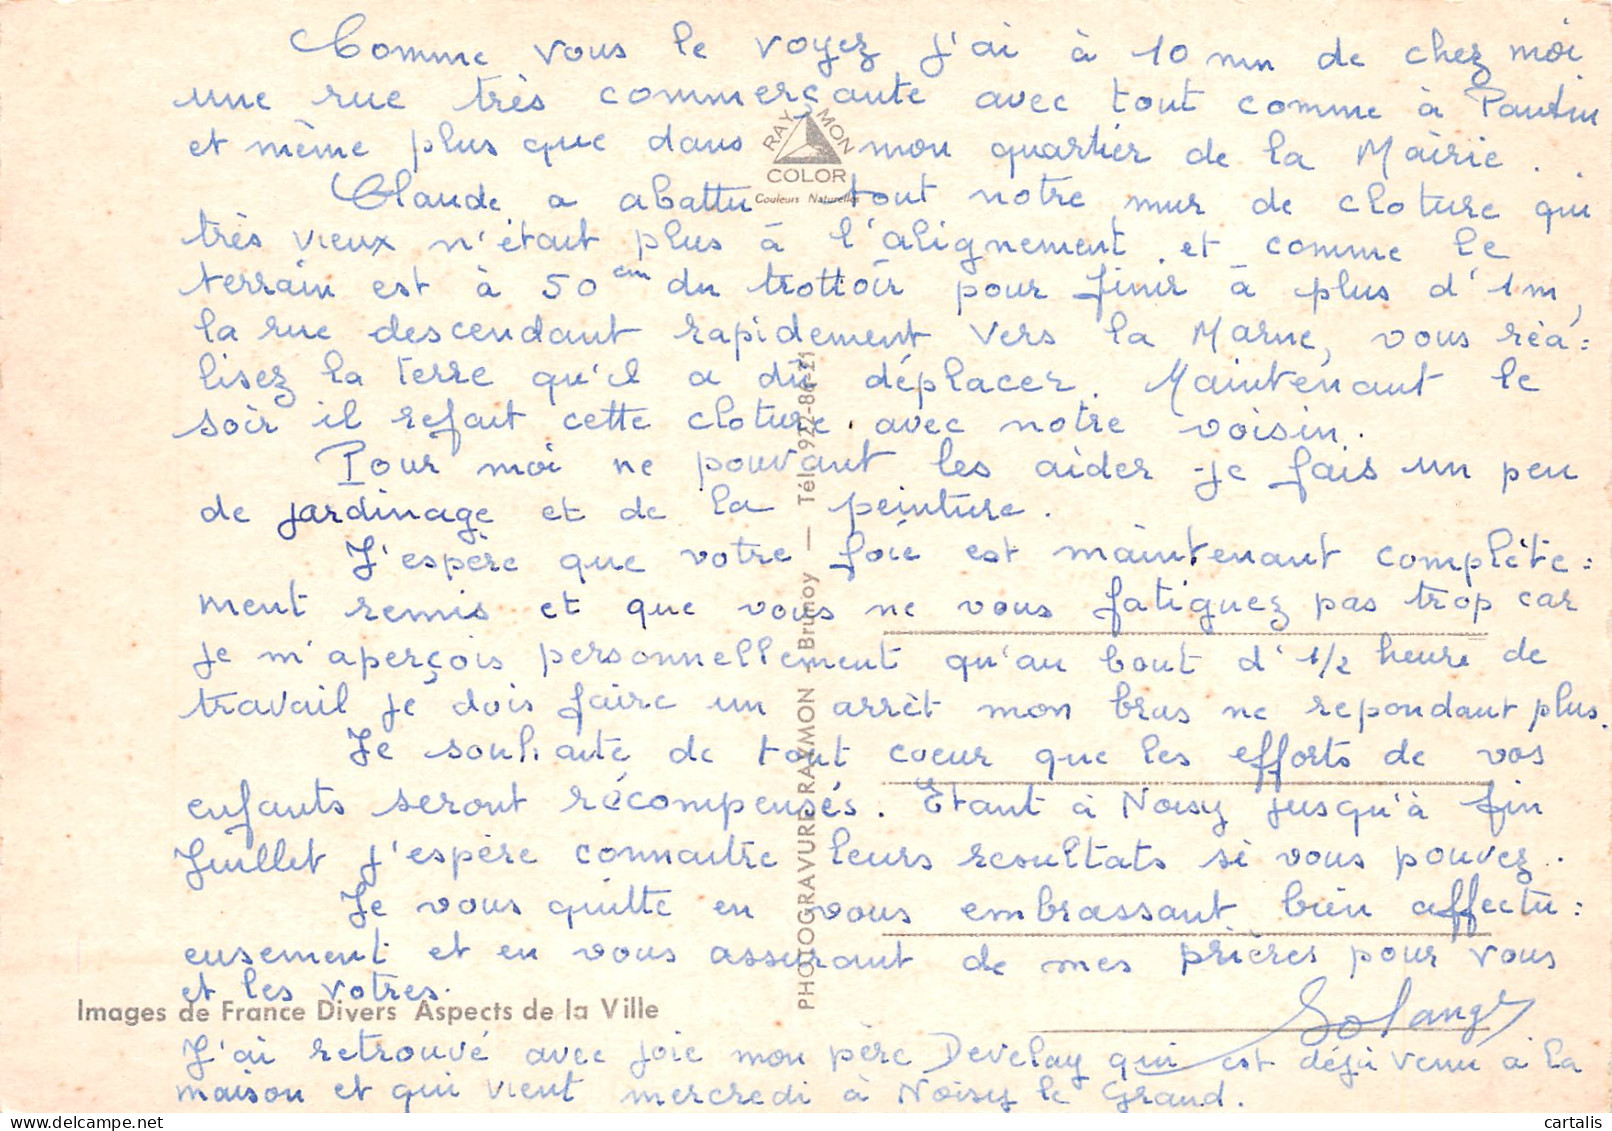 Comme vous le voyez j'ai à 10 mn de chez moi
une rue très commerçante avec tout comme à Pantin
et même plus que dans mon quartier de la Mairie.
RAYMON
COLOR
Couleurs Naturelles
Claude a abattu tout notre mur de cloture qui
très vieux n'était plus à l'alignement et comme le
terrain est à 50 cm du trottoir pour finir à plus d'1m,
la rue descendant rapidement vers la Marne, vous réa=
lisez la terre qu'il a dû déplacer. Maintenant le
soir il refait cette cloture avec notre voisin.
Pour moi ne pouvant les aider je fais un peu
de jardinage et de la peinture.
J'espère que votre foie est maintenant complète=
ment remis et que vous ne vous fatiguez pas trop car
je m'aperçois personnellement qu'au bout d'1/2 heure de
travail je dois faire un arrêt mon bras ne repondant plus.
Je souhaite de tout coeur que les efforts de vos
enfants seront récompensés. Etant à Noisy jusqu'à fin
Juillet j'espère connaitre leurs resultats si vous pouvez.
Je vous quitte en vous embrassant bien affectu=
eusement et en vous assurant de mes prières pour vous
et les votres.
Solange
J'ai retrouvé avec joie mon père Develay qui est déjà venu à la
maison et qui vient mercredi à Noisy le Grand.
Images de France Divers Aspects de la Ville
PHOTOGRAVURE RAYMON - Brunoy — Tél. 922-86-21
cartalis